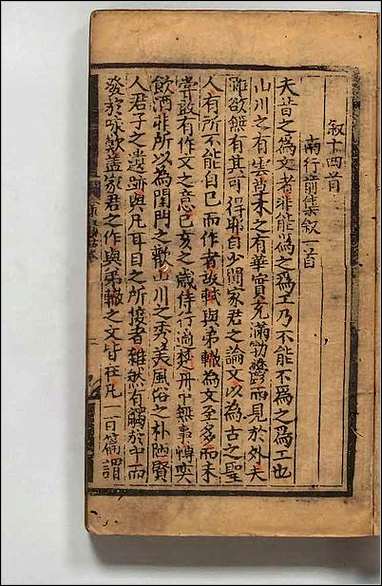 叙十四首
南行前集叙一首
夫昔之為文者非能為之為工乃不能不為之為工也
山川之有雲草木之有華實充滿勃欝而見於外夫
雖欲無有其可得耶自少聞家君之論文以為古之聖
人有所不能自已而作者故軾與弟轍為文至多而未
嘗敢有作文之意己亥之歳侍行適楚舟中無事博奕
飲酒非所以為閨門之歡山川之秀美風俗之朴陋賢
人君子之遺跡與凡耳目之所接者雜然有觸於中而
發於咏歎盖家君之作與弟轍之文皆在凡一百篇謂